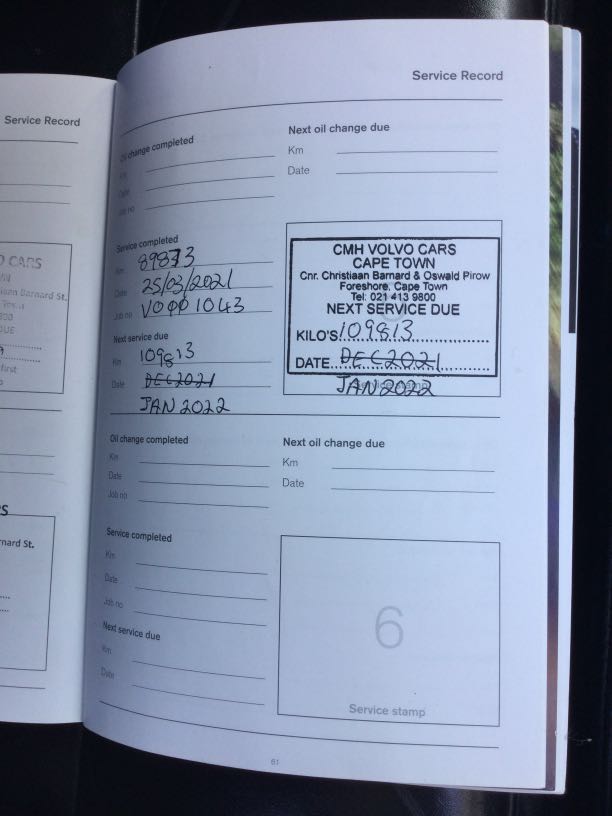 Service Record
O CARS
iaan Barnard St.
UE
first
S
nard St.
Service Record
Oil change completed
Km
Date
Job no
Next oil change due
Km
Date
Service completed
Km 89873
Date 25/03/2021
Job no VOØØ1043
Next service due
Km 109813
Date DEC 2021
JAN 2022
CMH VOLVO CARS
CAPE TOWN
Cnr. Christiaan Barnard & Oswald Pirow
Foreshore, Cape Town
Tel: 021 413 9800
NEXT SERVICE DUE
KILO'S 109813
DATE DEC 2021
JAN 2022
Service stamp
Oil change completed
Km
Date
Job no
Next oil change due
Km
Date
Service completed
Km
Date
Job no
Next service due
Km
Date
6
Service stamp
61